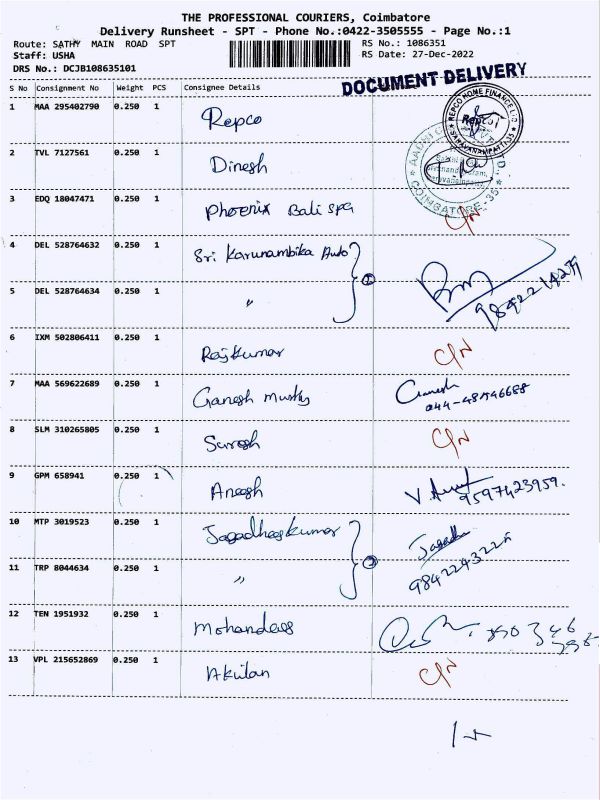 THE PROFESSIONAL COURIERS, Coimbatore
Delivery Runsheet - SPT - Phone No.:0422-3505555 - Page No.:1
Route: SATHY MAIN ROAD SPT
RS No.: 1086351
Staff: USHA
RS Date: 27-Dec-2022
DRS No.: DCJB108635101
DOCUMENT DELIVERY
S No Consignment No Weight PCS Consignee Details
1 MAA 295402790 0.250 1 Repco
REPCO HOME FINANCE LTD
SARAVANAMPATTI-35
2 TVL 7127561 0.250 1 Dinesh
COIMBATORE-35
3 EDQ 18047471 0.250 1 Phoenix Bali spa C/N
4 DEL 528764632 0.250 1 Sri Karunambika Auto
5 DEL 528764634 0.250 1 "
6 IXM 502806411 0.250 1 Rajkumar C/N
7 MAA 569622689 0.250 1 Ganesh Ganesh
8 SLM 310265805 0.250 1 Suresh C/N
9 GPM 658941 0.250 1 Aneesh
9597423959.
10 MTP 3019523 0.250 1 Jagadheeskumar
11 TRP 8044634 0.250 1 "
12 TEN 1951932 0.250 1 Mohandass
13 VPL 215652869 0.250 1 Akilan C/N